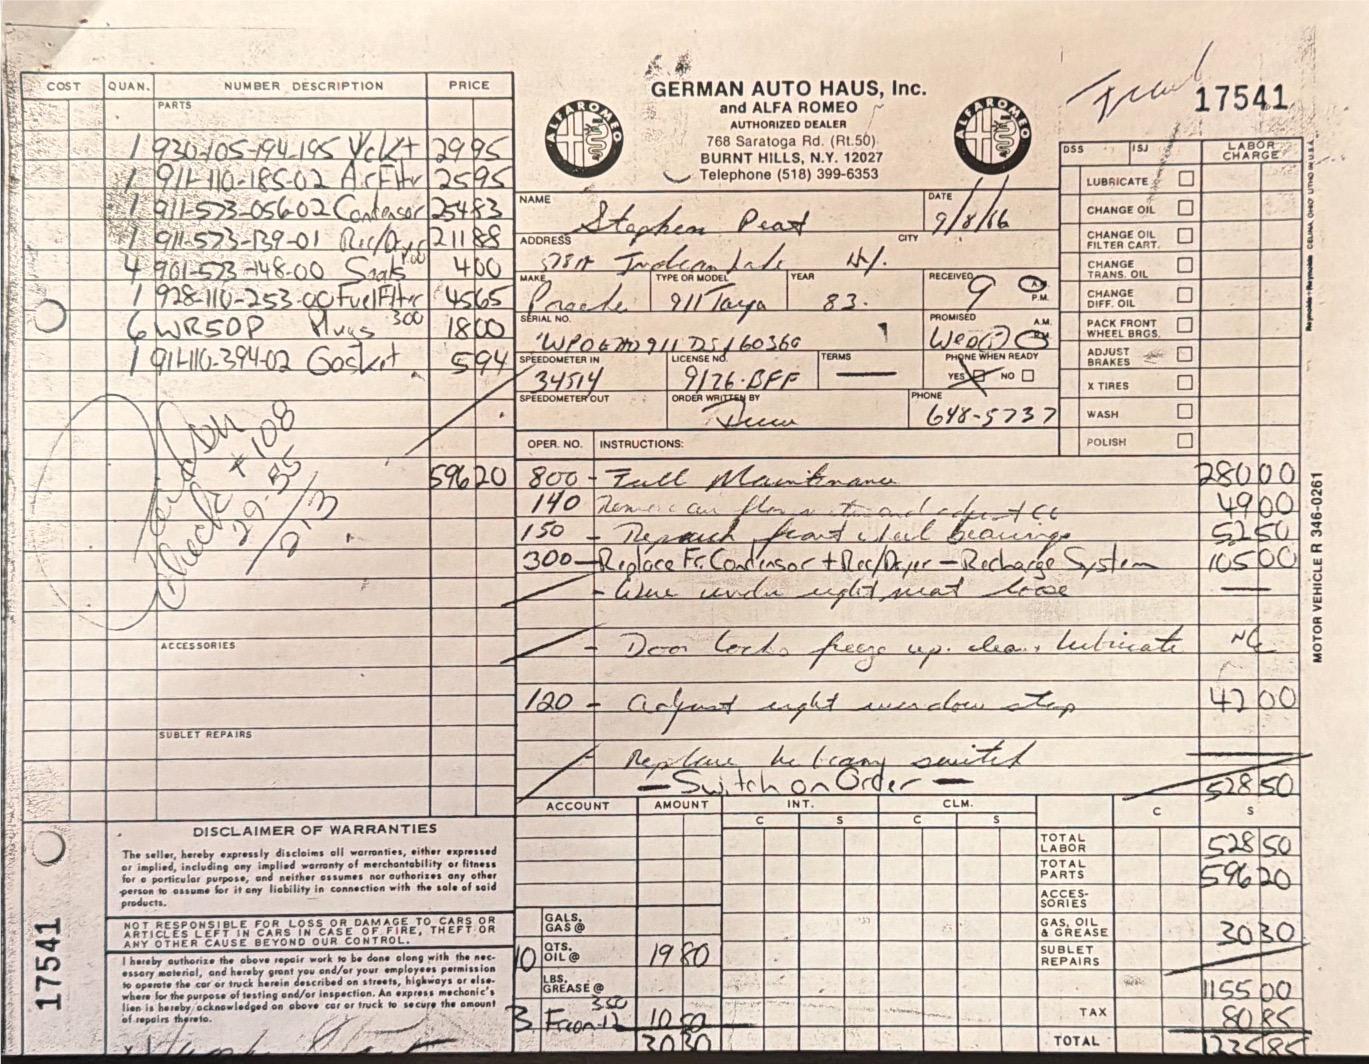 GERMAN AUTO HAUS, Inc.
and ALFA ROMEO
AUTHORIZED DEALER
768 Saratoga Rd. (Rt.50)
BURNT HILLS, N.Y. 12027
Telephone (518) 399-6353
ALFA ROMEO
ALFA ROMEO
17541
COST QUAN. NUMBER DESCRIPTION PRICE
PARTS
1 930-105-194-195 Vc Kt 29 95
1 911-110-185-02 Air Fltr 25 95
1 911-573-056-02 Condensor 254 83
1 911-573-139-01 Rec/Dryer 211 88
4 901-573-148-00 Seals 1.00 4 00
1 928-110-253-00 Fuel Fltr 45 65
6 WR5DP Plugs 3.00 18 00
1 911-110-394-02 Gasket 5 94
596 20
Check #108
ACCESSORIES
SUBLET REPAIRS
NAME Stephen Peat
DATE 9/8/86
ADDRESS Indian Lake N.Y.
CITY
MAKE Porsche
TYPE OR MODEL 911 Targa
YEAR 83.
RECEIVED 9 A.M. P.M.
SERIAL NO.
PROMISED Wed A.M. P.M.
SPEEDOMETER IN 34514
LICENSE NO. 9126-BFF
TERMS —
PHONE WHEN READY
YES NO
SPEEDOMETER OUT
ORDER WRITTEN BY Drew
PHONE 648-5737
DSS ISJ LABOR CHARGE
LUBRICATE
CHANGE OIL
CHANGE OIL FILTER CART.
CHANGE TRANS. OIL
CHANGE DIFF. OIL
PACK FRONT WHEEL BRGS.
ADJUST BRAKES
X TIRES
WASH
POLISH
OPER. NO. INSTRUCTIONS:
800 - Full Maintenance 280 00
140 and adjust 49 00
150 - Repack front wheel bearings 52 50
300 - Replace Fr. Condensor + Rec/Dryer - Recharge System 105 00
- Wire under right seat loose —
- Door locks freeze up. clean, lubricate NC
120 - adjust right window stop 42 00
Replace switch
- Switch on Order -
528 50
ACCOUNT AMOUNT INT. CLM. C S
C S C S
TOTAL LABOR 528 50
TOTAL PARTS 596 20
ACCESSORIES
GALS. GAS @
GAS, OIL & GREASE 30 30
10 QTS. OIL @ 19 80
SUBLET REPAIRS
LBS. GREASE @
1155 00
3 Freon-12 3.50 10 50
TAX 80 85
30 30
TOTAL 1235 85
DISCLAIMER OF WARRANTIES
The seller, hereby expressly disclaims all warranties, either expressed
or implied, including any implied warranty of merchantability or fitness
for a particular purpose, and neither assumes nor authorizes any other
person to assume for it any liability in connection with the sale of said
products.
NOT RESPONSIBLE FOR LOSS OR DAMAGE TO CARS OR
ARTICLES LEFT IN CARS IN CASE OF FIRE, THEFT OR
ANY OTHER CAUSE BEYOND OUR CONTROL.
I hereby authorize the above repair work to be done along with the nec-
essary material, and hereby grant you and/or your employees permission
to operate the car or truck herein described on streets, highways or else-
where for the purpose of testing and/or inspection. An express mechanic's
lien is hereby acknowledged on above car or truck to secure the amount
of repairs thereto.
17541
MOTOR VEHICLE R 346-0261